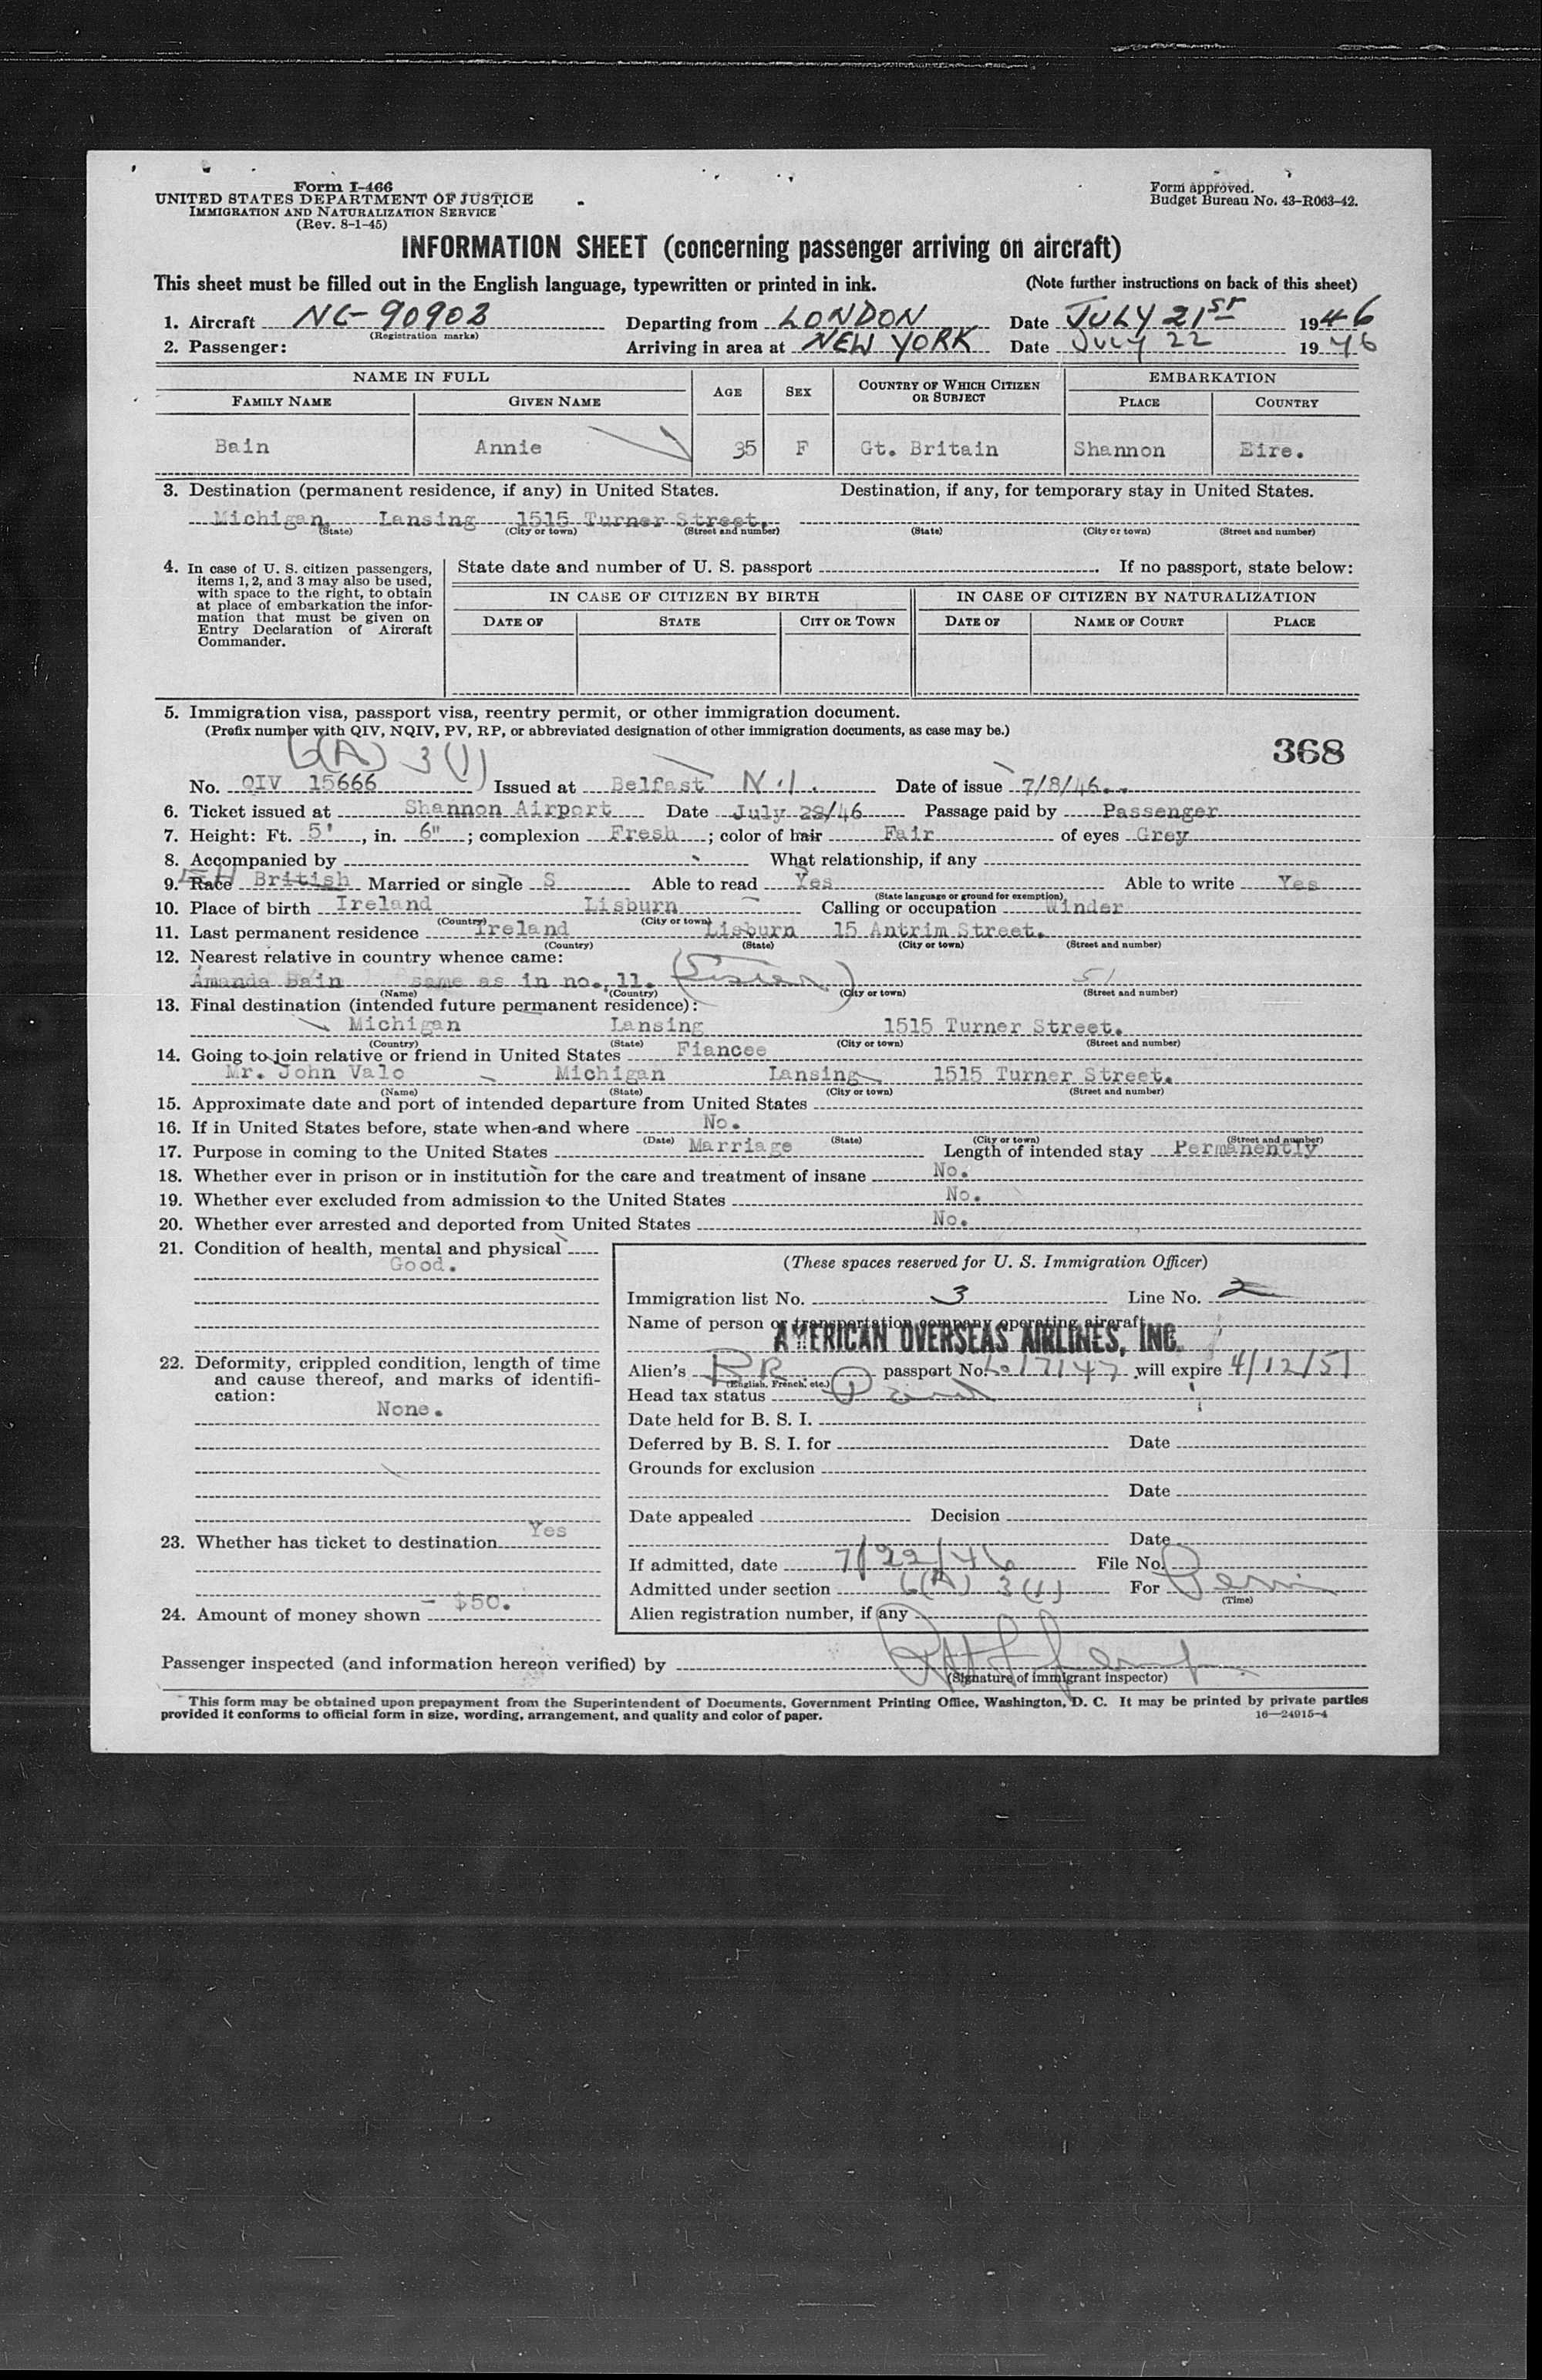 Form I-466
UNITED STATES DEPARTMENT OF JUSTICE
IMMIGRATION AND NATURALIZATION SERVICE
(Rev. 8-1-45)
Form approved.
Budget Bureau No. 43-R063-42.
INFORMATION SHEET (concerning passenger arriving on aircraft)
This sheet must be filled out in the English language, typewritten or printed in ink. (Note further instructions on back of this sheet)
1. Aircraft NC-90903 Departing from LONDON Date JULY 21ST 1946
(Registration marks)
2. Passenger: Arriving in area at NEW YORK Date JULY 22 1946
NAME IN FULL AGE SEX COUNTRY OF WHICH CITIZEN OR SUBJECT EMBARKATION
FAMILY NAME GIVEN NAME PLACE COUNTRY
Bain Annie 35 F Gt. Britain Shannon Eire.
3. Destination (permanent residence, if any) in United States. Destination, if any, for temporary stay in United States.
Michigan, Lansing 1515 Turner Street,
(State) (City or town) (Street and number) (State) (City or town) (Street and number)
4. In case of U. S. citizen passengers, items 1, 2, and 3 may also be used, with space to the right, to obtain at place of embarkation the information that must be given on Entry Declaration of Aircraft Commander.
State date and number of U. S. passport . If no passport, state below:
IN CASE OF CITIZEN BY BIRTH IN CASE OF CITIZEN BY NATURALIZATION
DATE OF STATE CITY OR TOWN DATE OF NAME OF COURT PLACE
5. Immigration visa, passport visa, reentry permit, or other immigration document.
(Prefix number with QIV, NQIV, PV, RP, or abbreviated designation of other immigration documents, as case may be.)
6(A) 3(1) 368
No. QIV 15666 Issued at Belfast N.I. Date of issue 7/8/46.
6. Ticket issued at Shannon Airport Date July 22/46 Passage paid by Passenger
7. Height: Ft. 5', in. 6"; complexion Fresh; color of hair Fair of eyes Grey
8. Accompanied by What relationship, if any
9. Race British Married or single S Able to read Yes Able to write Yes
(State language or ground for exemption)
10. Place of birth Ireland Lisburn Calling or occupation Winder
(Country) (City or town)
11. Last permanent residence Ireland Lisburn 15 Antrim Street.
(Country) (State) (City or town) (Street and number)
12. Nearest relative in country whence came:
Amanda Bain same as in no. 11. (Sister)
(Name) (Country) (City or town) (Street and number)
13. Final destination (intended future permanent residence):
Michigan Lansing 1515 Turner Street.
(Country) (State) (City or town) (Street and number)
14. Going to join relative or friend in United States Fiancee
Mr. John Valo Michigan Lansing 1515 Turner Street.
(Name) (State) (City or town) (Street and number)
15. Approximate date and port of intended departure from United States
16. If in United States before, state when and where No.
(Date) (State) (City or town) (Street and number)
17. Purpose in coming to the United States Marriage Length of intended stay Permanently
18. Whether ever in prison or in institution for the care and treatment of insane No.
19. Whether ever excluded from admission to the United States No.
20. Whether ever arrested and deported from United States No.
21. Condition of health, mental and physical
Good.
22. Deformity, crippled condition, length of time and cause thereof, and marks of identification:
None.
23. Whether has ticket to destination Yes
24. Amount of money shown $50.
(These spaces reserved for U. S. Immigration Officer)
Immigration list No. 3 Line No. 2
Name of person or transportation company operating aircraft
AMERICAN OVERSEAS AIRLINES, INC.
Alien's BR passport No. 17147 will expire 4/12/51
(English, French, etc.)
Head tax status Paid
Date held for B. S. I.
Deferred by B. S. I. for Date
Grounds for exclusion
Date
Date appealed Decision
Date
If admitted, date 7/22/46 File No.
Admitted under section 6(A) 3(1) For Perm
(Time)
Alien registration number, if any
Passenger inspected (and information hereon verified) by
(Signature of immigrant inspector)
This form may be obtained upon prepayment from the Superintendent of Documents, Government Printing Office, Washington, D. C. It may be printed by private parties
provided it conforms to official form in size, wording, arrangement, and quality and color of paper. 16—24915-4